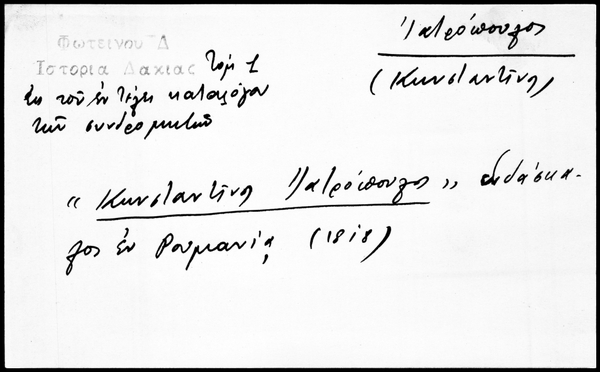 Φωτεινου Δ
Ιστορια Δακιας Τόμ 1
Ἐκ τοῦ ἐν τέλει καταλόγου
τῶν συνδρομητῶν
Ἰατρόπουλος
(Κωνσταντῖνος)
"Κωνσταντῖνος Ἰατρόπουλος" διδάσκα-
λος ἐν Ρουμανίᾳ (1818)